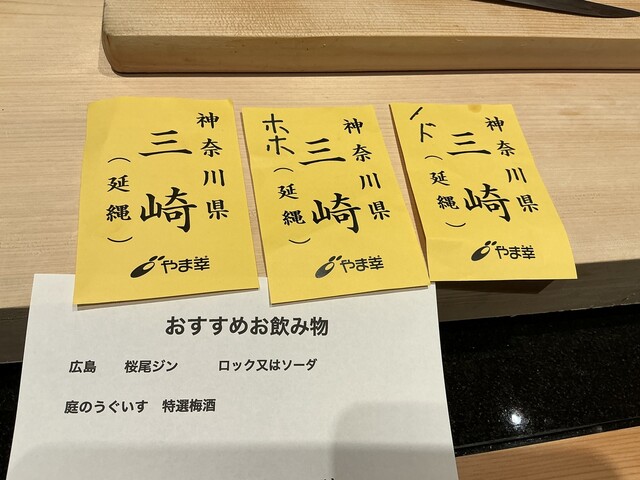 神奈川県
三崎
（延縄）
やま幸
ホホ
神奈川県
三崎
（延縄）
やま幸
ノド
神奈川県
三崎
（延縄）
やま幸
おすすめお飲み物
広島 桜尾ジン ロック又はソーダ
庭のうぐいす 特選梅酒